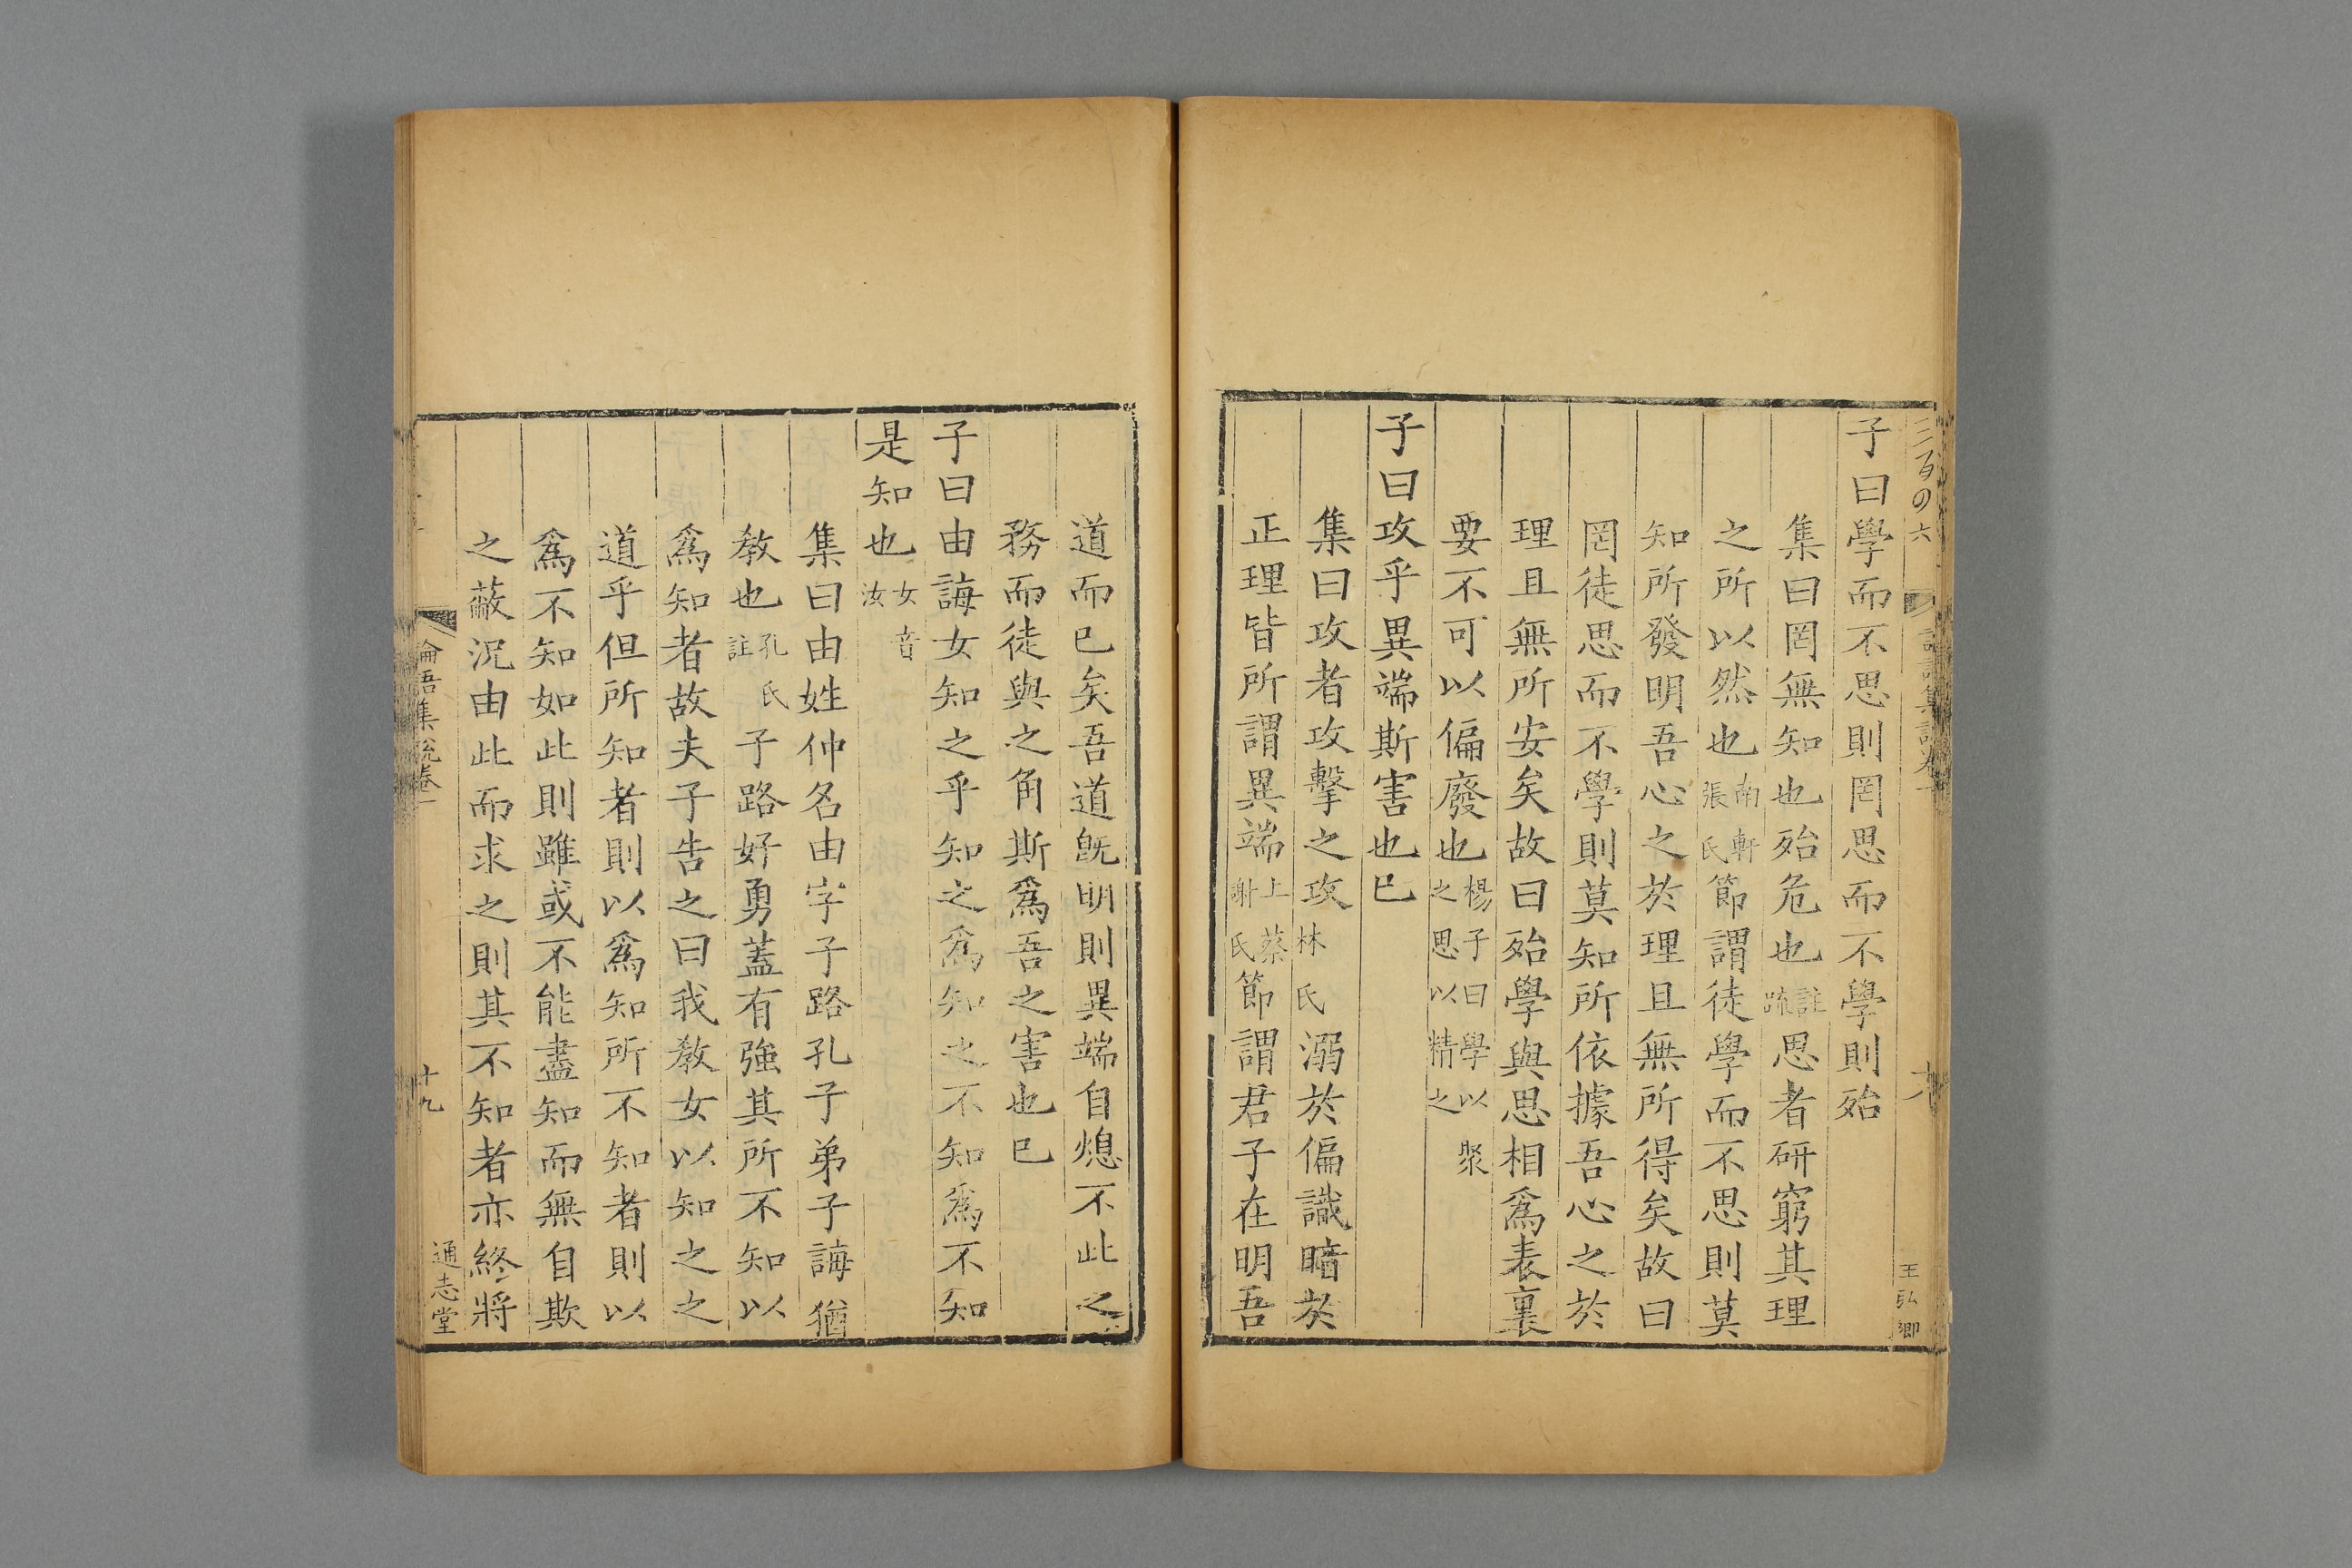 子曰學而不思則罔思而不學則殆
集曰罔無知也殆危也註疏思者研窮其理
之所以然也南軒張氏節謂徒學而不思則莫
知所發明吾心之於理且無所得矣故曰
罔徒思而不學則莫知所依據吾心之於
理且無所安矣故曰殆學與思相爲表裏
要不可以偏廢也楊子曰學以聚之思以精之
子曰攻乎異端斯害也已
集曰攻者攻擊之攻林氏溺於偏識暗於
正理皆所謂異端上蔡謝氏節謂君子在明吾
道而已矣吾道旣明則異端自熄不此之
務而徒與之角斯爲吾之害也已
子曰由誨女知之乎知之爲知之不知爲不知
是知也女音汝
集曰由姓仲名由字子路孔子弟子誨猶
敎也孔氏註子路好勇蓋有強其所不知以
爲知者故夫子告之曰我敎女以知之之
道乎但所知者則以爲知所不知者則以
爲不知如此則雖或不能盡知而無自欺
之蔽況由此而求之則其不知者亦終將
論語集說卷一
十九
通志堂
十八
王弘卿